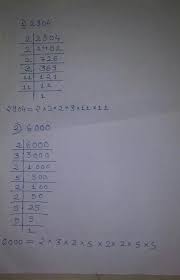 1) 2904
2 2904
2 1452
2 726
3 363
11 121
11 11
1
2904 = 2 x 2 x 2 x 3 x 11 x 11
2) 6000
2 6000
3 3000
2 1000
5 500
2 100
2 50
5 25
5 5
1
6000 = 2 x 3 x 2 x 5 x 2 x 2 x 5 x 5